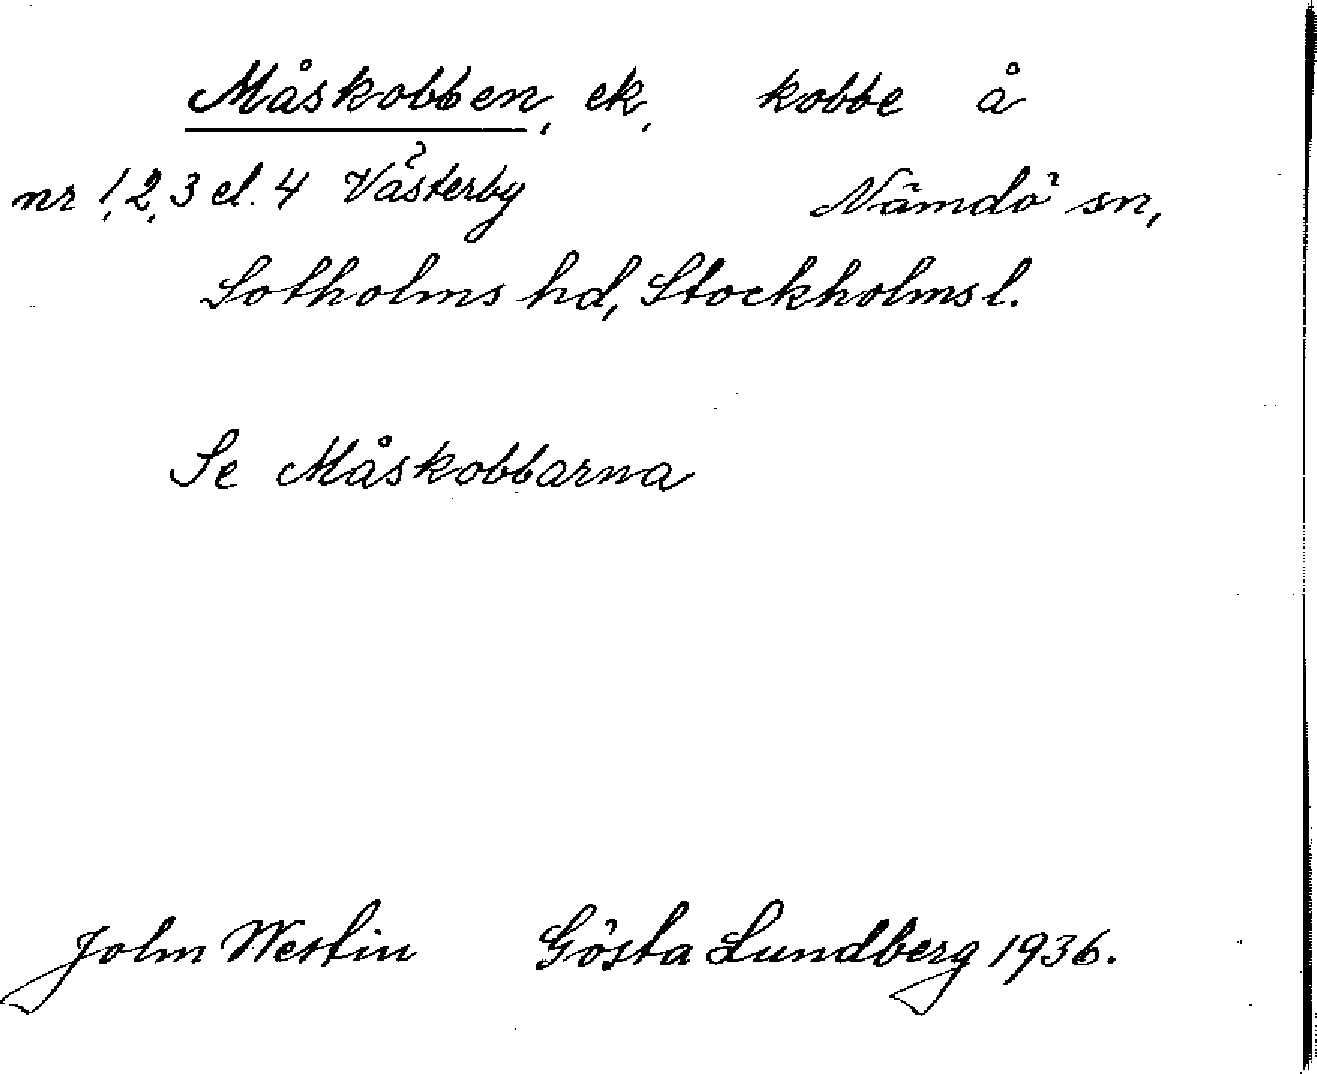 Måskobben, ek, kobbe å
nr 1, 2, 3 el. 4 Västerby Nämdö sn,
Sotholms hd, Stockholms l.
Se Måskobbarna
John Westin Gösta Lundberg 1936.